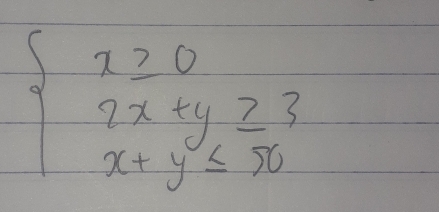 x ≥ 0
2x + y ≥ 3
x + y ≤ 50